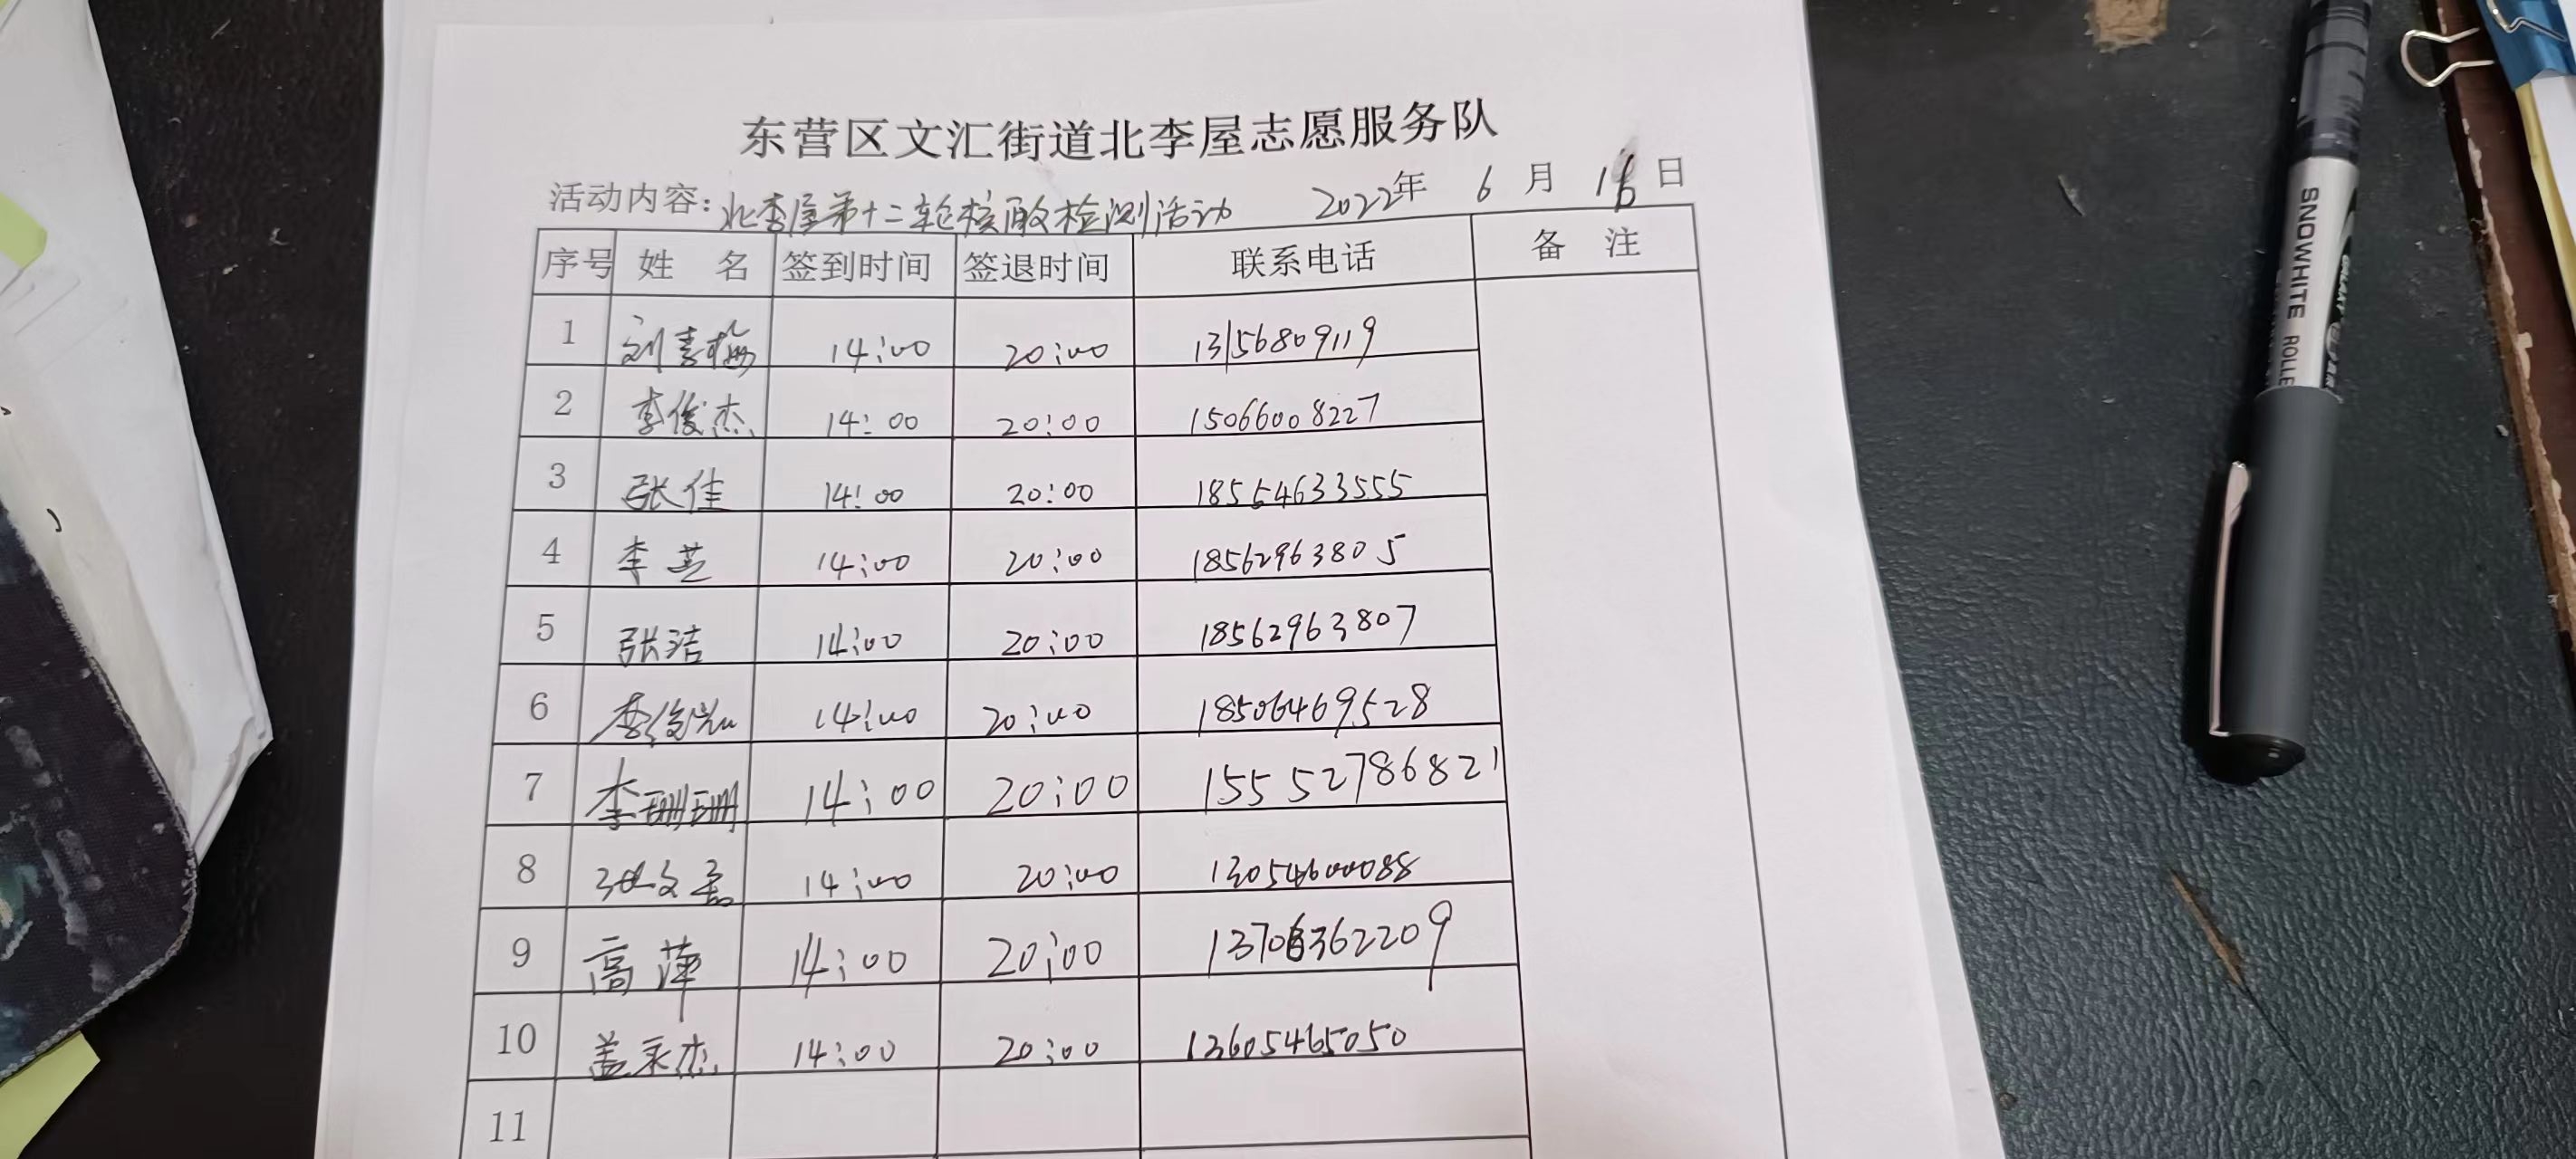 东营区文汇街道北李屋志愿服务队
活动内容：北李屋第十二轮核酸检测活动 2022年 6 月 16 日
序号 姓 名 签到时间 签退时间 联系电话 备 注
1 刘素梅 14:00 20:00 13156809119
2 李俊杰 14:00 20:00 15066008227
3 张佳 14:00 20:00 18554633555
4 李芝 14:00 20:00 18562963805
5 张洁 14:00 20:00 18562963807
6 14:00 20:00 18506469528
7 李珊珊 14:00 20:00 15552786821
8 14:00 20:00 13054600088
9 高萍 14:00 20:00 13706362209
10 盖永杰 14:00 20:00 13605465050
11
SNOWHITE ROLLE